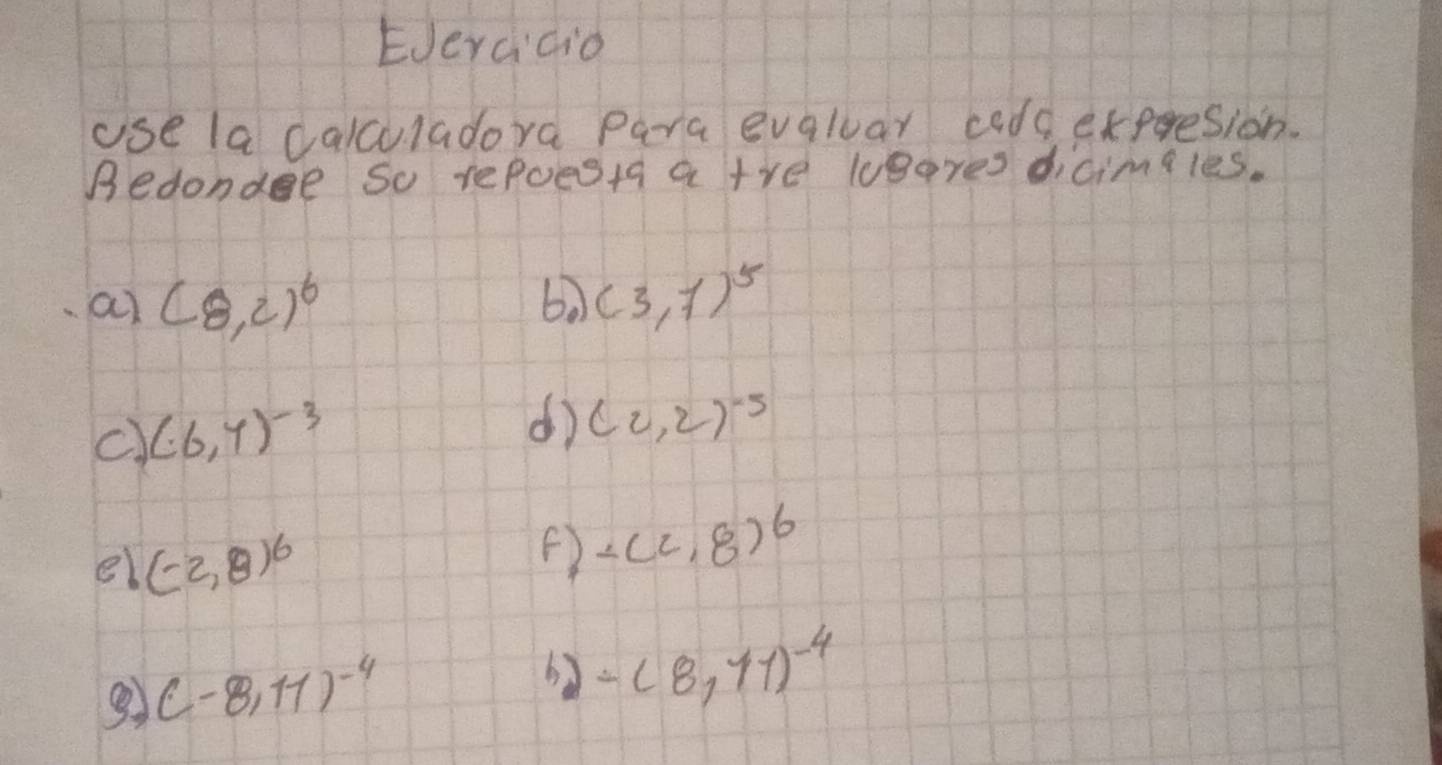 EJercicio
use la calculadora Para evaluar cada expresión.
Redondee su repuesta a tre lugares dicimales.
a) (8,2)⁶ b.) (3,7)⁵
c) (6,1)⁻³ d) (2,2)⁻⁵
e) (-2,8)⁶ F) -(2,8)⁶
g) (-8,11)⁻⁴ h) -(8,11)⁻⁴